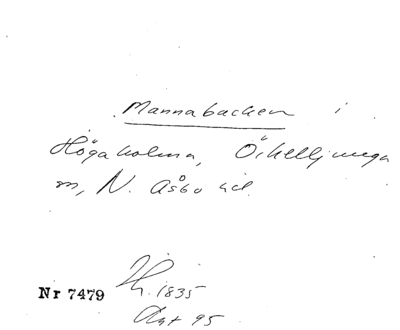 Mannabacken i
Högaholma, Örkelljunga
m, N. Åsbo hd.
Nr 7479
1835
95